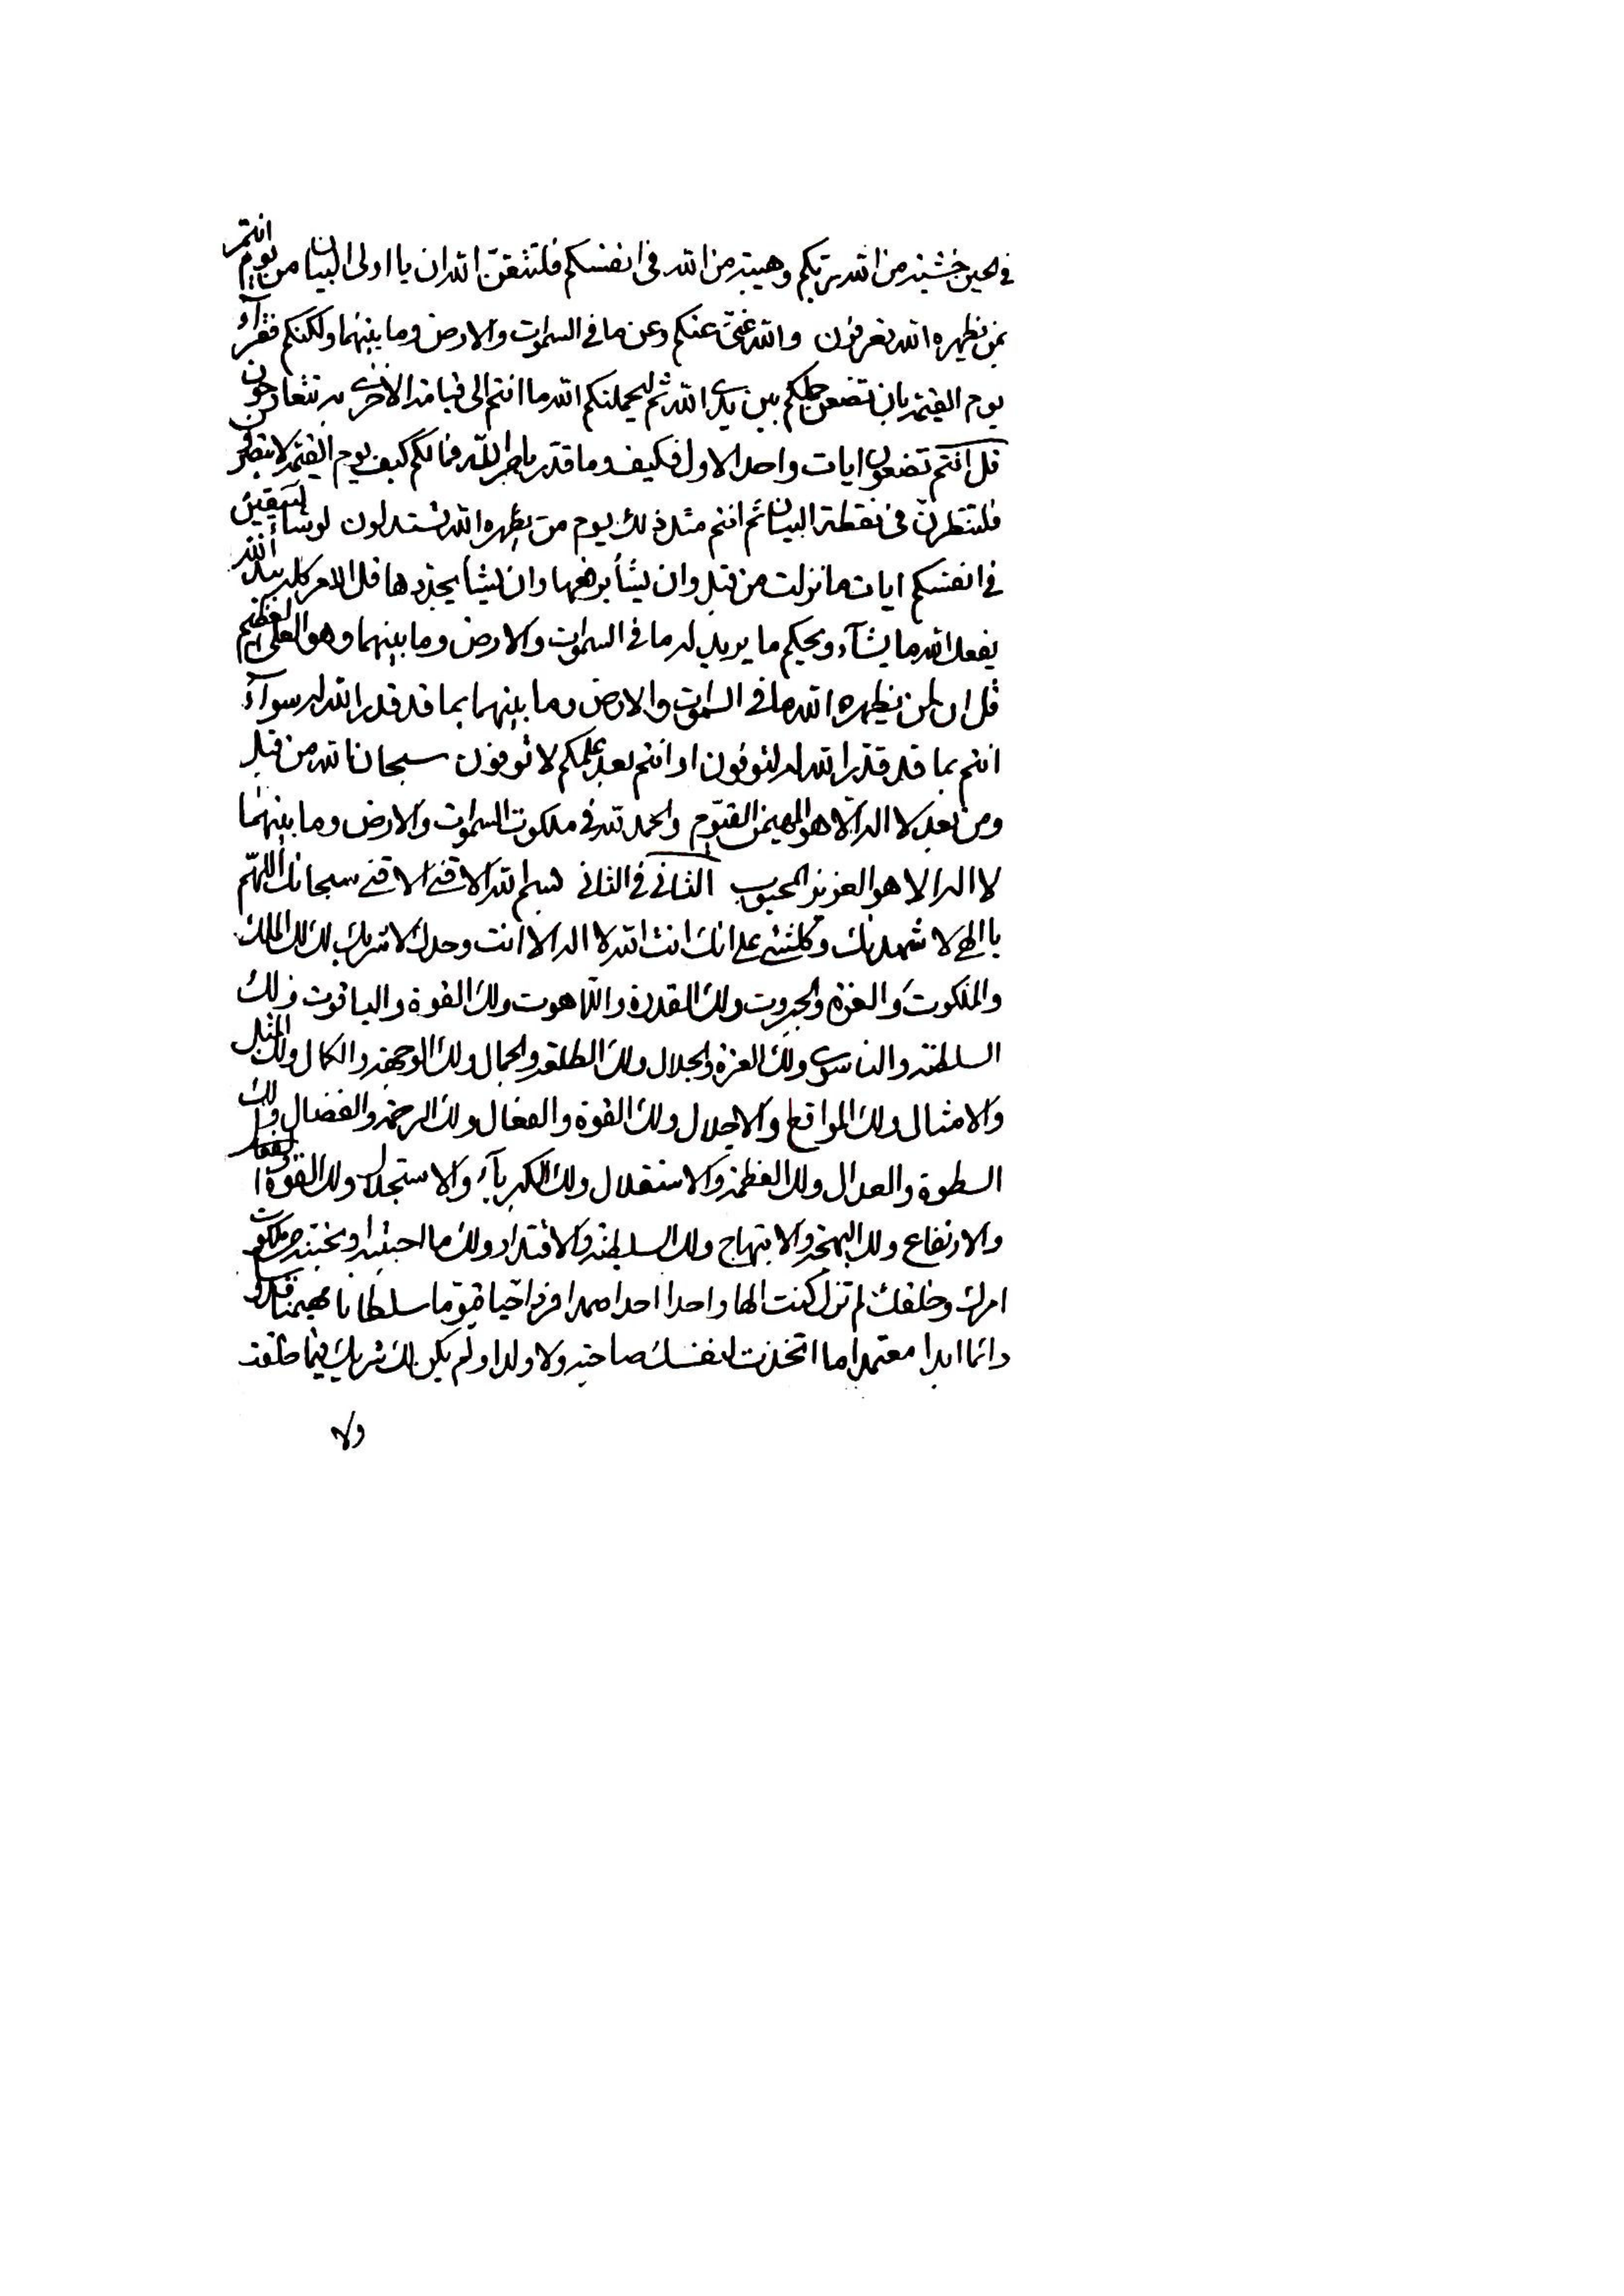 في الحين خشية من الله ربكم وهيبة من الله في انفسكم فلتتقن الله ان يا اولى البيان من يوم انتم
بمن يظهره الله تعرفون والله غني عنكم وعن ما في السموات والارض وما بينهما ولكنكم فقرآء
يوم القيمة بان تضعن حملكم بين يدي الله ثم ليحملنكم الله ما انتم الى قيامة الاخرى به تتعارجون
قل انتم تضعون ايات واحد الاول فكيف وما قدر بامر الله فما لكم كيف يوم القيمة لا تنظرون
فلتنظرن في نقطة البيان ثم انتم مثل ذلك يوم من يظهره الله تستدلون لو يشآء ليبقين
في انفسكم ايات ما نزلت من قبل وان يشأ يرفعها وان يشأ يجددها قل الامر كله بيد الله
يفعل الله ما يشآء ويحكم ما يريد له ما في السموات والارض وما بينهما وهو العلي العظيم
قل ان لمن يظهره الله ما في السموات والارض وما بينهما بما قد قدر الله له سوآء
انتم بما قد قدر الله له لتوفون او انتم بعد علمكم لا توفون سبحان الله من قبل
ومن بعد لا اله الا هو المهيمن القيوم والحمد لله في ملكوت السموات والارض وما بينهما
لا اله الا هو العزيز المحبوب الثاني في الثاني بسم الله الاقني الاقني سبحانك اللهم
يا الهي لاشهدنك وكلشيء على انك انت الله لا اله الا انت وحدك لا شريك لك لك الملك
والملكوت ولك العزة والجبروت ولك القدرة واللاهوت ولك القوة والياقوت ولك
السلطنة والناسوت ولك العزة والجلال ولك الطلعة والجمال ولك الوجهة والكمال ولك المثل
والامثال ولك المواقع والاجلال ولك القوة والفعال ولك الرحمة والفضال ولك
السطوة والعدال ولك العظمة والاستقلال ولك الكبريآء والاستجلال ولك القوة
والارتفاع ولك البهجة والابتهاج ولك السلطنة والاقتدار ولك ما احببته او تحبنه من ملكوت
امرك وخلقك لم تزل كنت الها واحدا احدا صمدا فردا حيا قيوما سلطانا مهيمنا قدوسا
دائما ابدا معتمدا ما اتخذت لنفسك صاحبة ولا ولدا ولم يكن لك شريك فيما خلقت
ولا